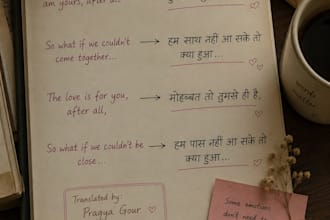 am yours, after all
So what if we couldn't
come together...
हम साथ नहीं आ सके तो
क्या हुआ...
The love is for you,
after all,
मोहब्बत तो तुमसे ही है,
So what if we couldn't be
close...
हम पास नहीं आ सके तो
क्या हुआ...
Translated by:
Pragya Gour
words
matter
Some emotions
don't need to